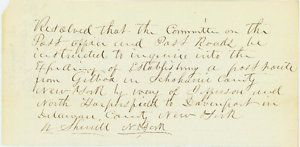 Resolved that the Committee on the
Post office and Post Roads be
instructed to enquire into the
Expediency of Establishing a post route
from Gilboa in Schoharie County
New York by way of Jefferson and
North Harpersfield to Davenport in
Delaware County New York
N. York